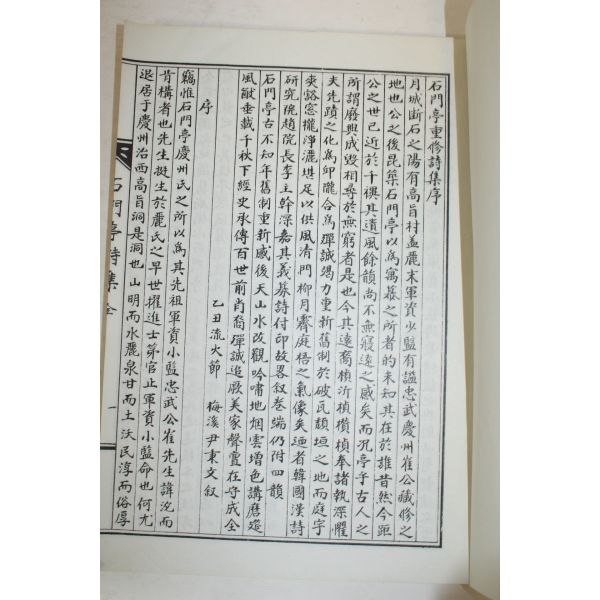 石門亭重修詩集序
月城断石之陽有高旨村盖麗末軍資少監有謚忠武慶州崔公藏修之
地也公之後昆築石門亭以為寓慕之所者的未知其在於誰昔然今距
公之世已近於千禩其遺風餘韻尚不無寢遠之感矣而況亭乎古人之
所謂廢興成毁相尋於無窮者是也今其遠裔楨沂楨欑楨奉諸執深懼
夫先蹟之化為印朧合為殫誠竭力重新舊制於破瓦頹垣之地而庭宇
爽豁窓櫳淨灑堪足以供風清門柳月霽庭梧之氣像矣迺者韓國漢詩
研究院趙院長李主幹深嘉其義募詩付印故畧叙巻端仍附四韻
石門亭古不知年舊制重新感後天山水改觀吟嘯地烟雲增色講磨筵
風猷垂載千秋下經史承傳百世前肖裔殫誠追厥美家聲亶在守成全
乙丑流火節　梅溪尹東文叙
序
竊惟石門亭慶州氏之所以為其先祖軍資小監忠武公崔先生諱沇而
肯構者也先生挺生於麗氏之早世擢進士第官止軍資小監命也何尤
退居于慶州治西高旨洞是洞也山明而水麗泉甘而土沃民淳而俗厚
石門亭詩集全
一